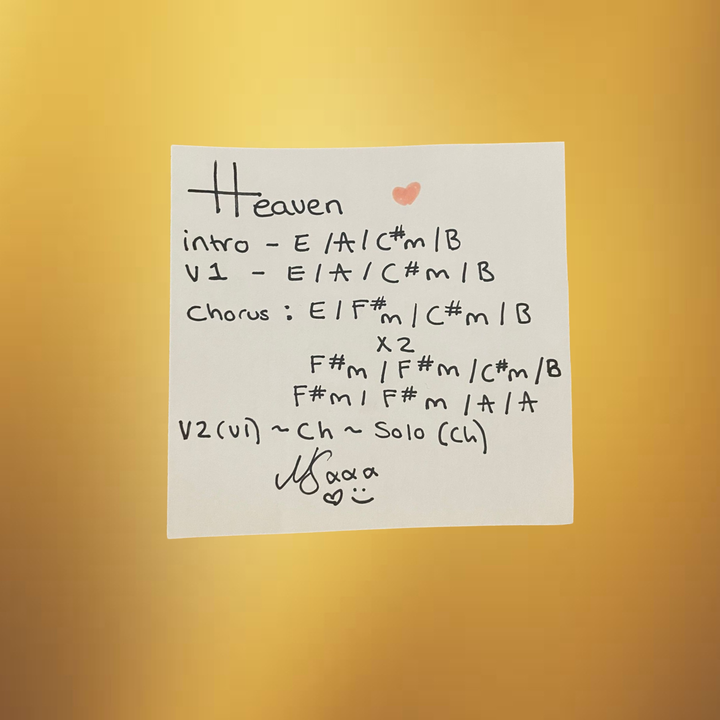 Heaven
intro - E /A/ C#m /B
V1 - E / A / C#m / B
Chorus : E / F#m / C#m / B
X2
F#m / F#m / C#m / B
F#m / F#m / A / A
V2 (V1) ~ Ch ~ Solo (Ch)